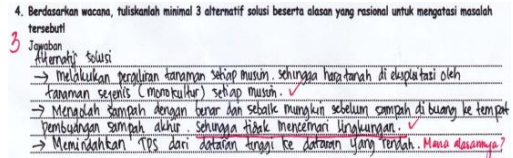 4. Berdasarkan wacana, tuliskanlah minimal 3 alternatif solusi beserta alasan yang rasional untuk mengatasi masalah
tersebut!
3 Jawaban
Alternatif solusi
→ melakukan pergiliran tanaman setiap musim. sehingga hara tanah di eksploitasi oleh
tanaman sejenis (monokultur) setiap musim. ✓
→ Mengolah sampah dengan benar dan sebaik mungkin sebelum sampah di buang ke tempat
pembuangan sampah akhir. sehingga tidak mencemari lingkungan. ✓
→ Memindahkan TPS dari dataran tinggi ke dataran yang rendah. Mana alasannya?